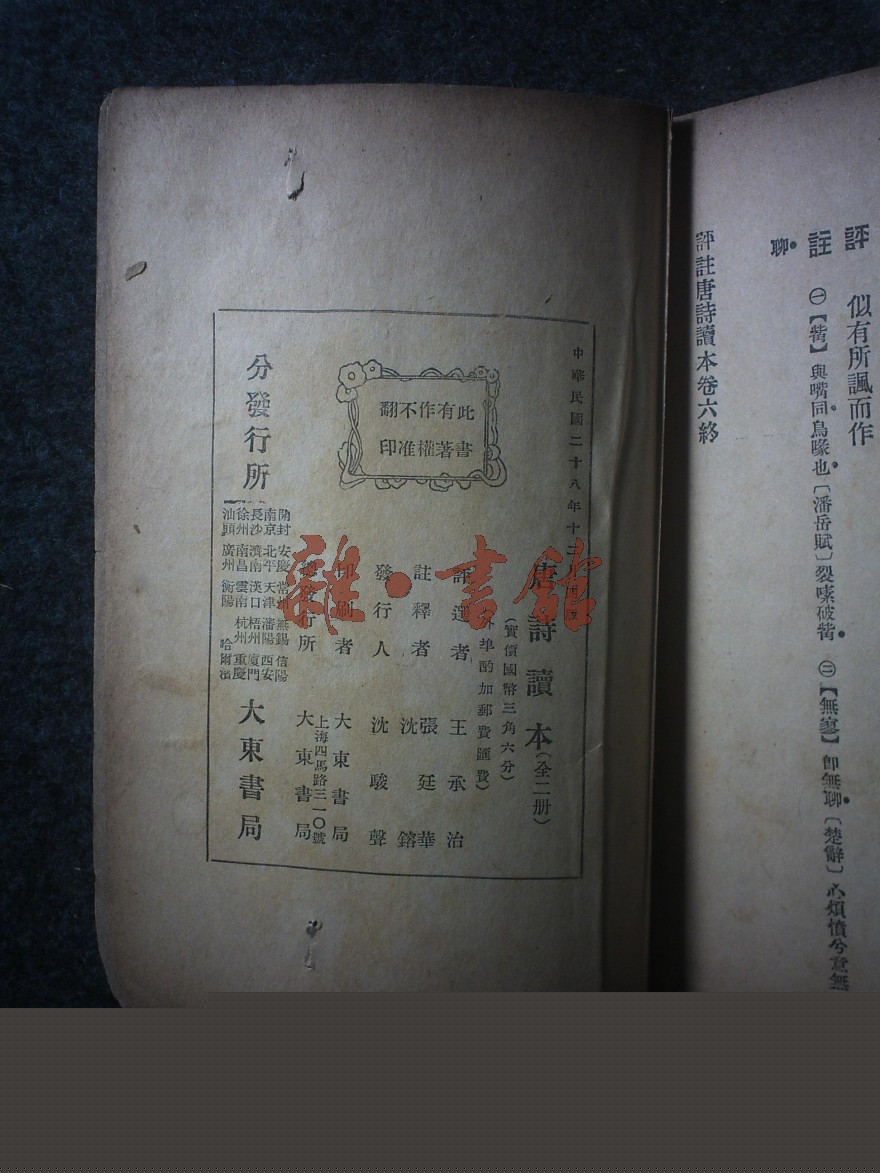 評 似有所諷而作
註 ㊀【觜】與嘴同鳥喙也〔潘岳賦〕裂嗉破觜 ㊁【無寥】卽無聊〔楚辭〕心煩憒兮意無
聊
評註唐詩讀本卷六終
中華民國二十八年十二月
唐詩讀本(全二册)
(實價國幣三角六分)
外埠酌加郵費匯費)
評選者 王承治
註釋者 張廷華
沈鎔
發行人 沈駿聲
印刷者 大東書局
上海四馬路三一〇號
發行所 大東書局
此書有著作權不准翻印
分發行所
開封 安慶 常州 無錫 信陽
南京 北平 天津 瀋陽 西安
長沙 濟南 漢口 梧州 廈門
徐州 南昌 雲南 杭州 重慶
汕頭 廣州 衡陽 哈爾濱
大東書局
雜·書館